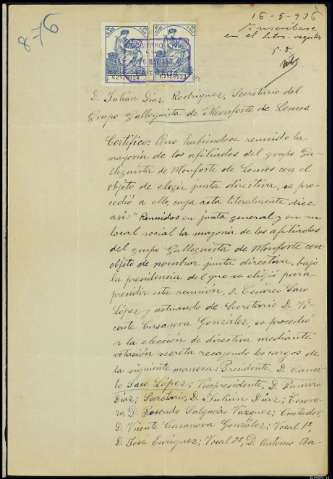 876
16-5-936
en el
D. Julián Díaz Rodríguez, Secretario del
Grupo Galleguista de Monforte de Lemos
Certifico: Que habiéndose reunido la
mayoría de los afiliados del grupo Ga-
lleguista de Monforte de Lemos con el
objeto de elegir junta directiva, se pro-
cedió a ello, cuya acta literalmente dice
así: "Reunidos en junta general y en su
local social la mayoría de los afiliados
del grupo Galleguista de Monforte con
objeto de nombrar junta directiva, bajo
la presidencia del que se eligió para
presidir esta reunión, D. Saco
López y actuando de Secretario D. Vi-
cente Casanova González, se procedió
a la elección de directiva mediante
votación secreta recayendo los cargos de
la siguiente manera: Presidente, D.
Saco López; Vicepresidente, D. Ramiro
Díaz; Secretario, D. Julián Díaz; Tesore-
ro, D. Vázquez; Contador,
D. Vicente Casanova González; Vocal 1º,
D. José Enríquez; Vocal 2º, D. Antonio